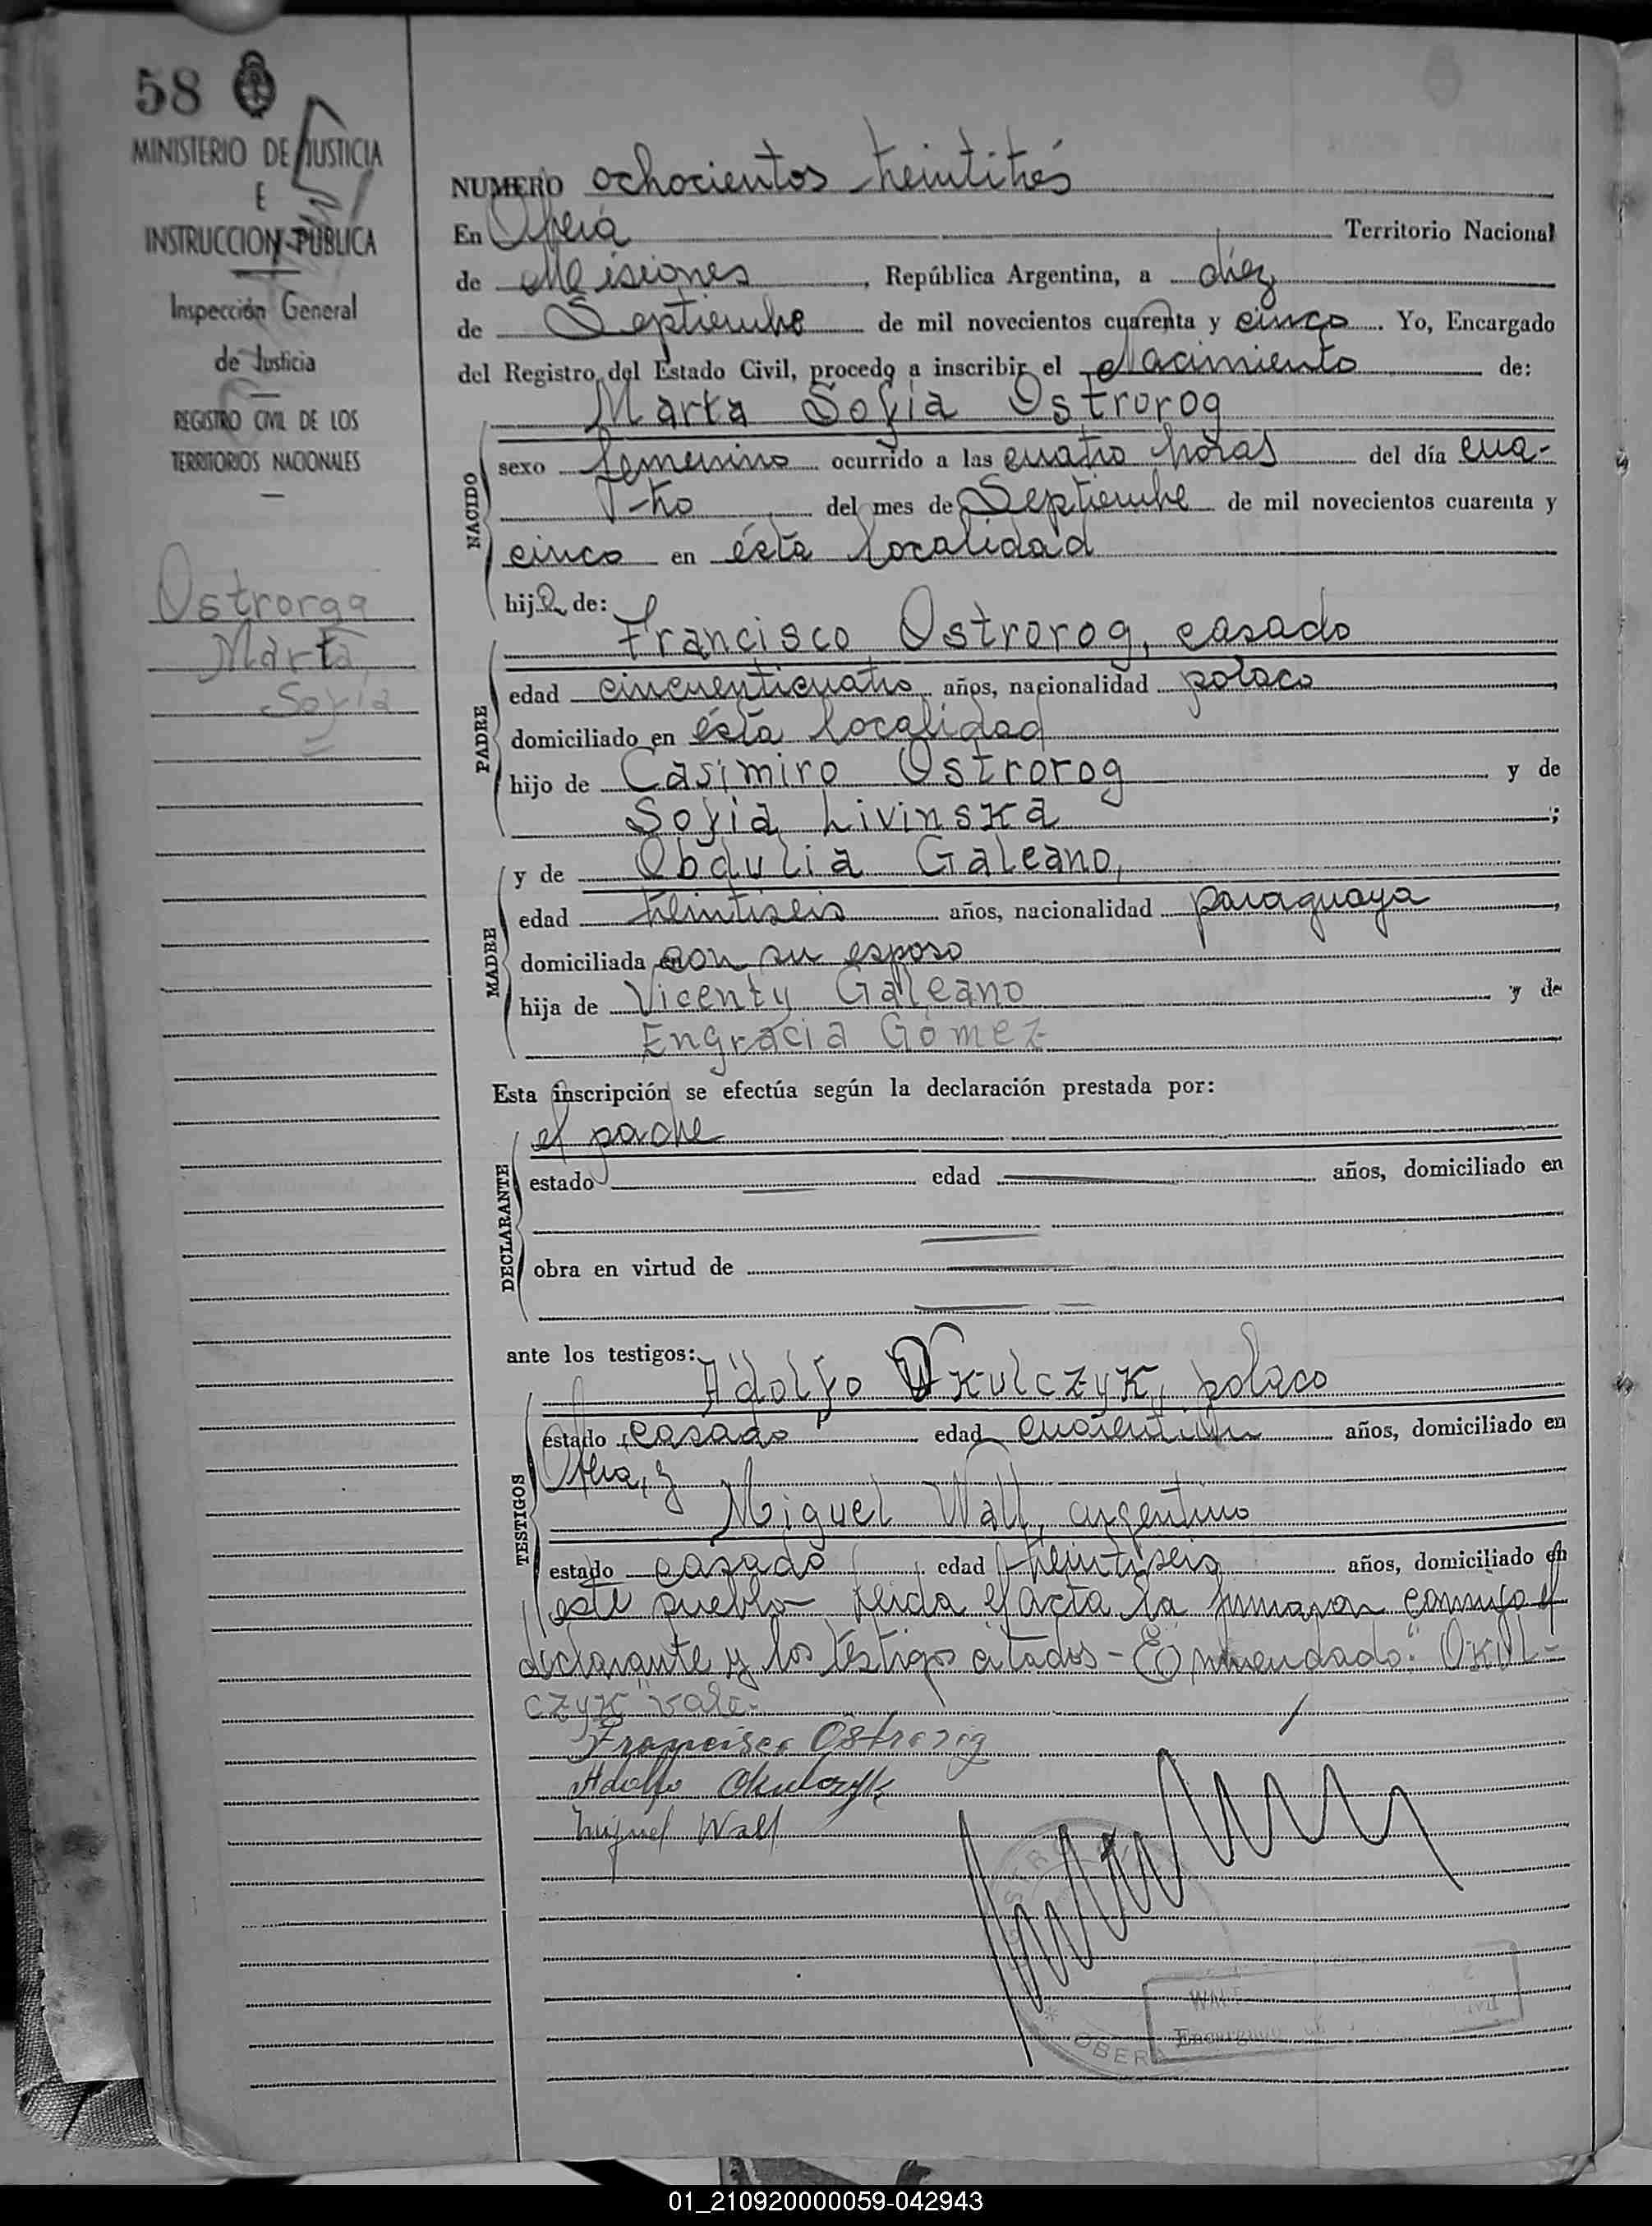 58
MINISTERIO DE JUSTICIA
E
INSTRUCCION PUBLICA
Inspección General
de Justicia
REGISTRO CIVIL DE LOS
TERRITORIOS NACIONALES
Ostrorog
Marta
Sofia
NUMERO ochocientos treintitrés
En Oberá Territorio Nacional
de Misiones, República Argentina, a diez
de Septiembre de mil novecientos cuarenta y cinco. Yo, Encargado
del Registro del Estado Civil, procedo a inscribir el Nacimiento de:
Marta Sofia Ostrorog
NACIDO
sexo femenino ocurrido a las cuatro horas del día cua-
tro del mes de Septiembre de mil novecientos cuarenta y
cinco en ésta localidad
hija de:
Francisco Ostrorog, casado
PADRE
edad cincuenticuatro años, nacionalidad polaco,
domiciliado en ésta localidad
hijo de Casimiro Ostrorog y de
Sofia Livinska;
MADRE
y de Obdulia Galeano,
edad treintiseis años, nacionalidad paraguaya,
domiciliada en con su esposo
hija de Vicenty Galeano y de
Engracia Gómez
Esta inscripción se efectúa según la declaración prestada por:
el padre
DECLARANTE
estado edad años, domiciliado en
obra en virtud de
ante los testigos:
Adolfo Okulczyk, polaco
TESTIGOS
estado casado edad años, domiciliado en
Oberá, y
Miguel Wall, argentino
estado casado edad treintiseis años, domiciliado en
este pueblo leida el acta la firmaron conmigo el
declarante y los testigos citados - Enmendado: "Okul-
czyk" vale.-
Francisco Ostrorog
Adolfo Okulczyk
Miguel Wall
OBERA
Encargado
01_210920000059-042943